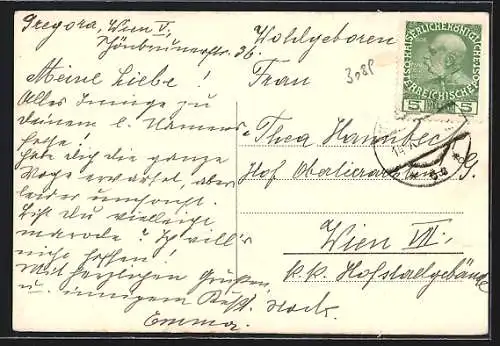 Gregora, Wien V.
Schönbrunnerstr. 36.
Meine Liebe!
Alles Innige zu
deinem l. Namens
feste!
Habe dich die ganze
Woge erwartet, aber
leider umsonst.
Bist du vielleigt
marode? Ich will's
nicht hoffen!
Mit herzlichen Grüßen
u. innigem Kuß
Emma.
Wohlgeboren
Frau
Thea
Hof
Wien VII.
k.k. Hofstallgebäude
KAISERLICHEKÖNIGLICHE
ÖSTERREICHISCHE
5 5